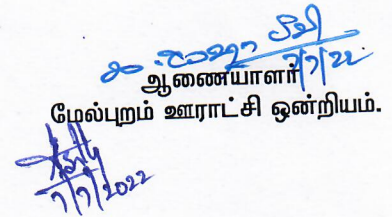 7/7/22
ஆணையாளர்
மேல்புறம் ஊராட்சி ஒன்றியம்.
7/7/2022